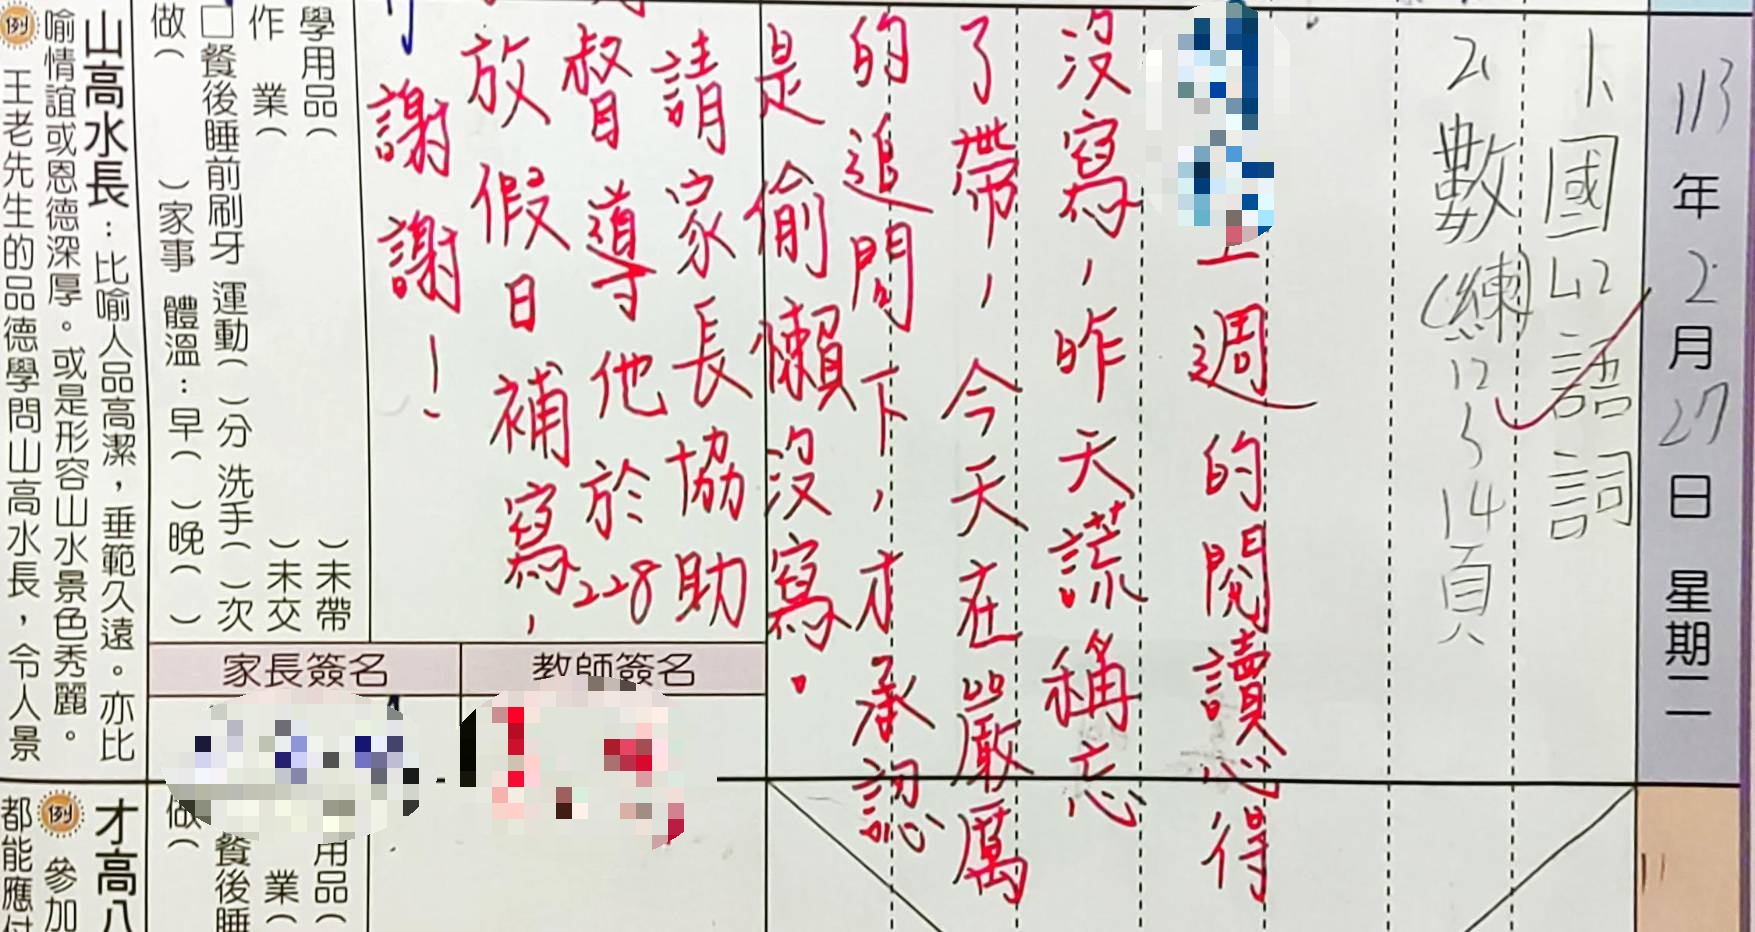 113年2月27日 星期二
1、國42語詞
2、數(練)12、14頁
上週的閱讀心得
沒寫，昨天謊稱忘
了帶，今天在嚴厲
的追問下，才承認
是偷懶沒寫。
請家長協助
督導他於228
放假日補寫，
謝謝！
學用品（ ）未帶
作 業（ ）未交
□餐後睡前刷牙 運動（ ）分 洗手（ ）次
做（ ）家事 體溫：早（ ）晚（ ）
教師簽名
家長簽名
山高水長：比喻人品高潔，垂範久遠。亦比
喻情誼或恩德深厚。或是形容山水景色秀麗。
例 王老先生的品德學問山高水長，令人景
用品（
業（
餐後睡
做（
才高八
例 參加
都能應付